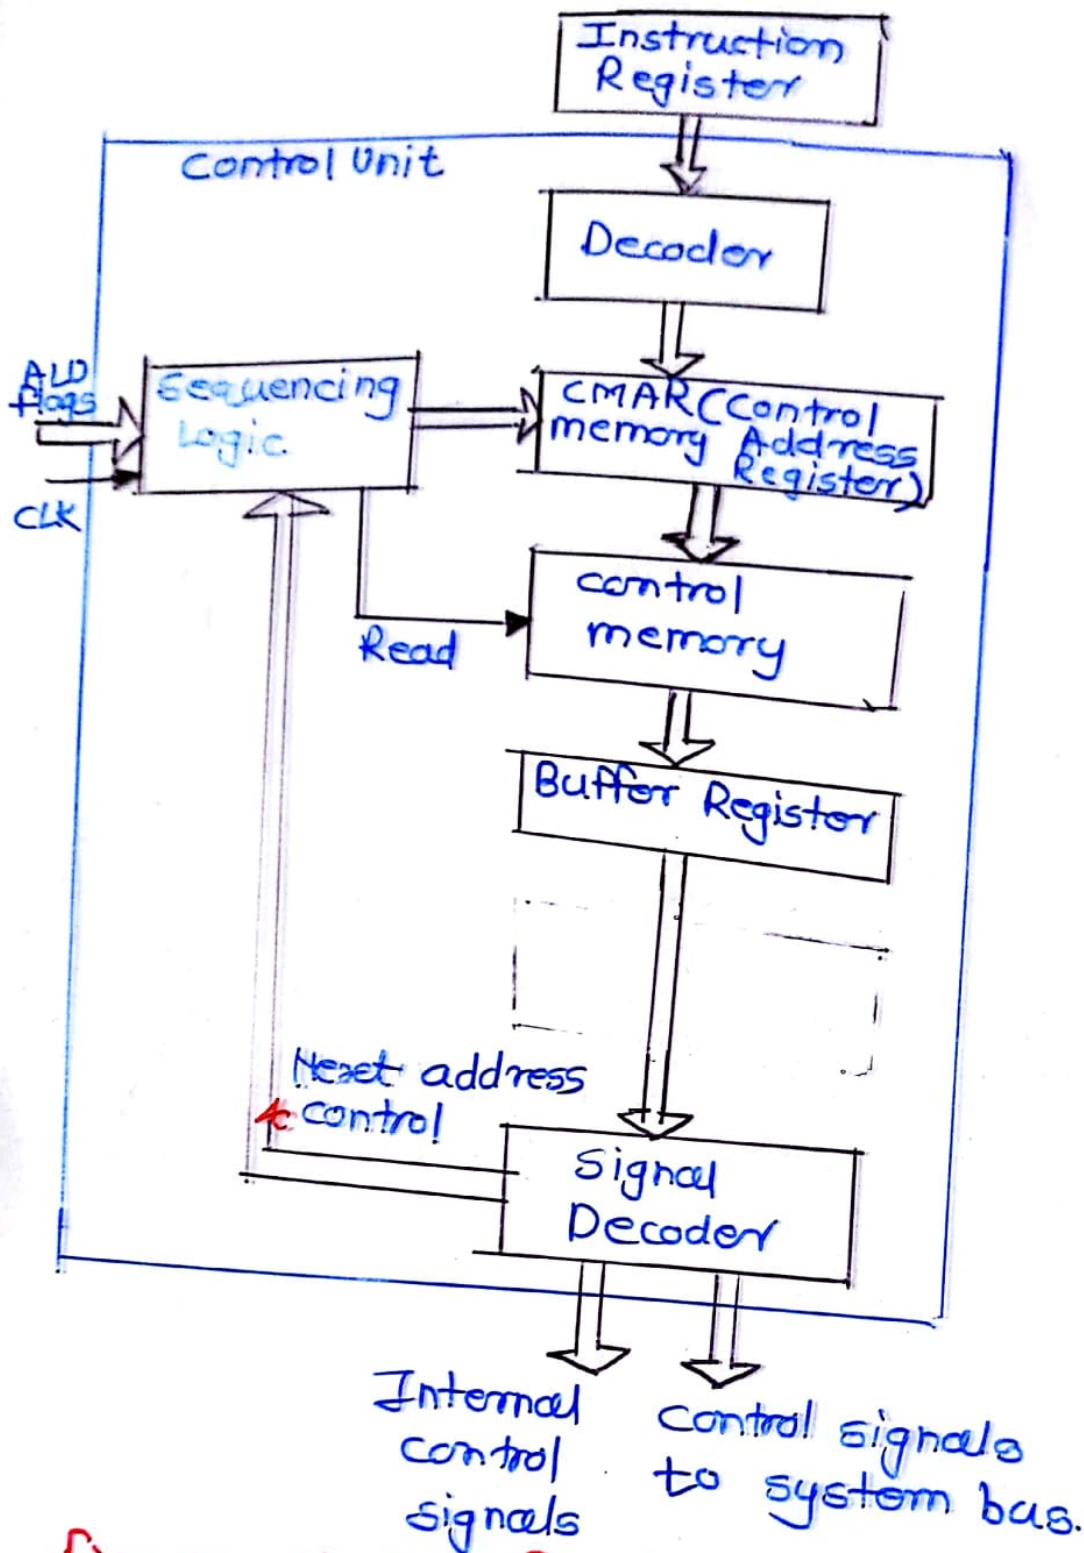 Instruction
Register
Control Unit
Decoder
ALU
flags
Sequencing
Logic
CLK
CMAR (Control
memory Address
Register)
Read
control
memory
Buffer Register
address
control
Signal
Decoder
Internal
control
signals
control signals
to system bus.